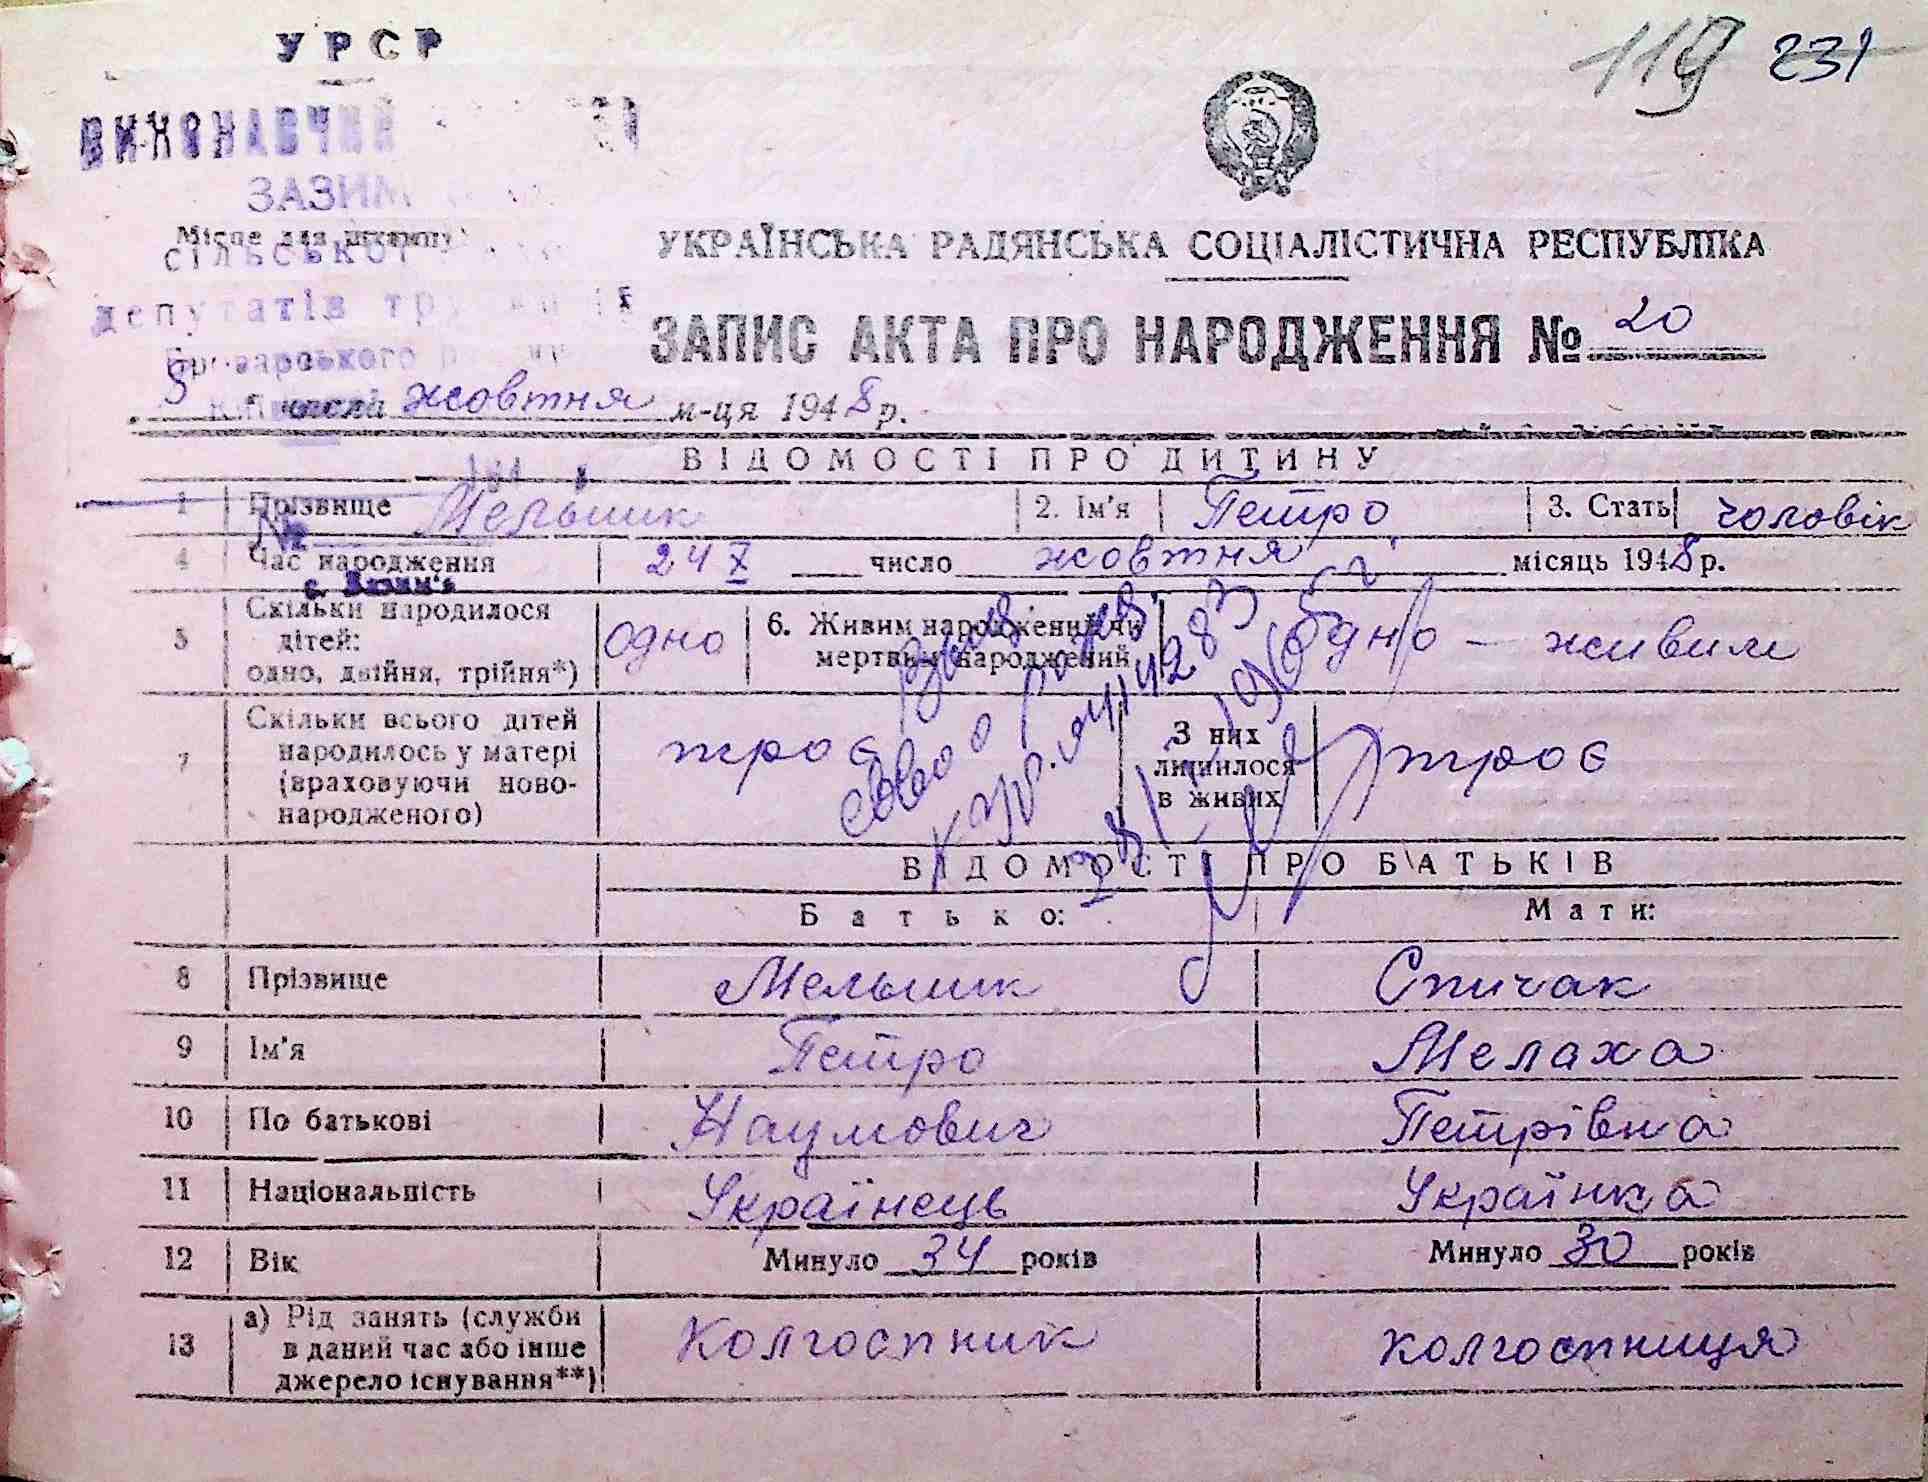 119 231
УРСР
ВИКОНАВЧИЙ
ЗАЗИМ
Місце для штампу
сільської
депутатів
Броварського
УКРАЇНСЬКА РАДЯНСЬКА СОЦІАЛІСТИЧНА РЕСПУБЛІКА
ЗАПИС АКТА ПРО НАРОДЖЕННЯ № 20
5 числа жовтня м-ця 1948 р.
ВІДОМОСТІ ПРО ДИТИНУ
1 Прізвище Мельник 2. Ім'я Петро 3. Стать чоловік
№
4 Час народження 24 X число жовтня місяць 1948 р.
с. Зазим'є
5 Скільки народилося дітей: одно, двійня, трійня*) одно 6. Живим народжений чи мертвим народжений одно - живим
7 Скільки всього дітей народилось у матері (враховуючи ново-народженого) троє З них лишилося в живих троє
ВІДОМОСТІ ПРО БАТЬКІВ
Батько: Мати:
8 Прізвище Мельник Спичак
9 Ім'я Петро Мелаха
10 По батькові Наумович Петрівна
11 Національність Українець Українка
12 Вік Минуло 34 років Минуло 30 років
13 а) Рід занять (служби в даний час або інше джерело існування**) Колгоспник колгоспниця